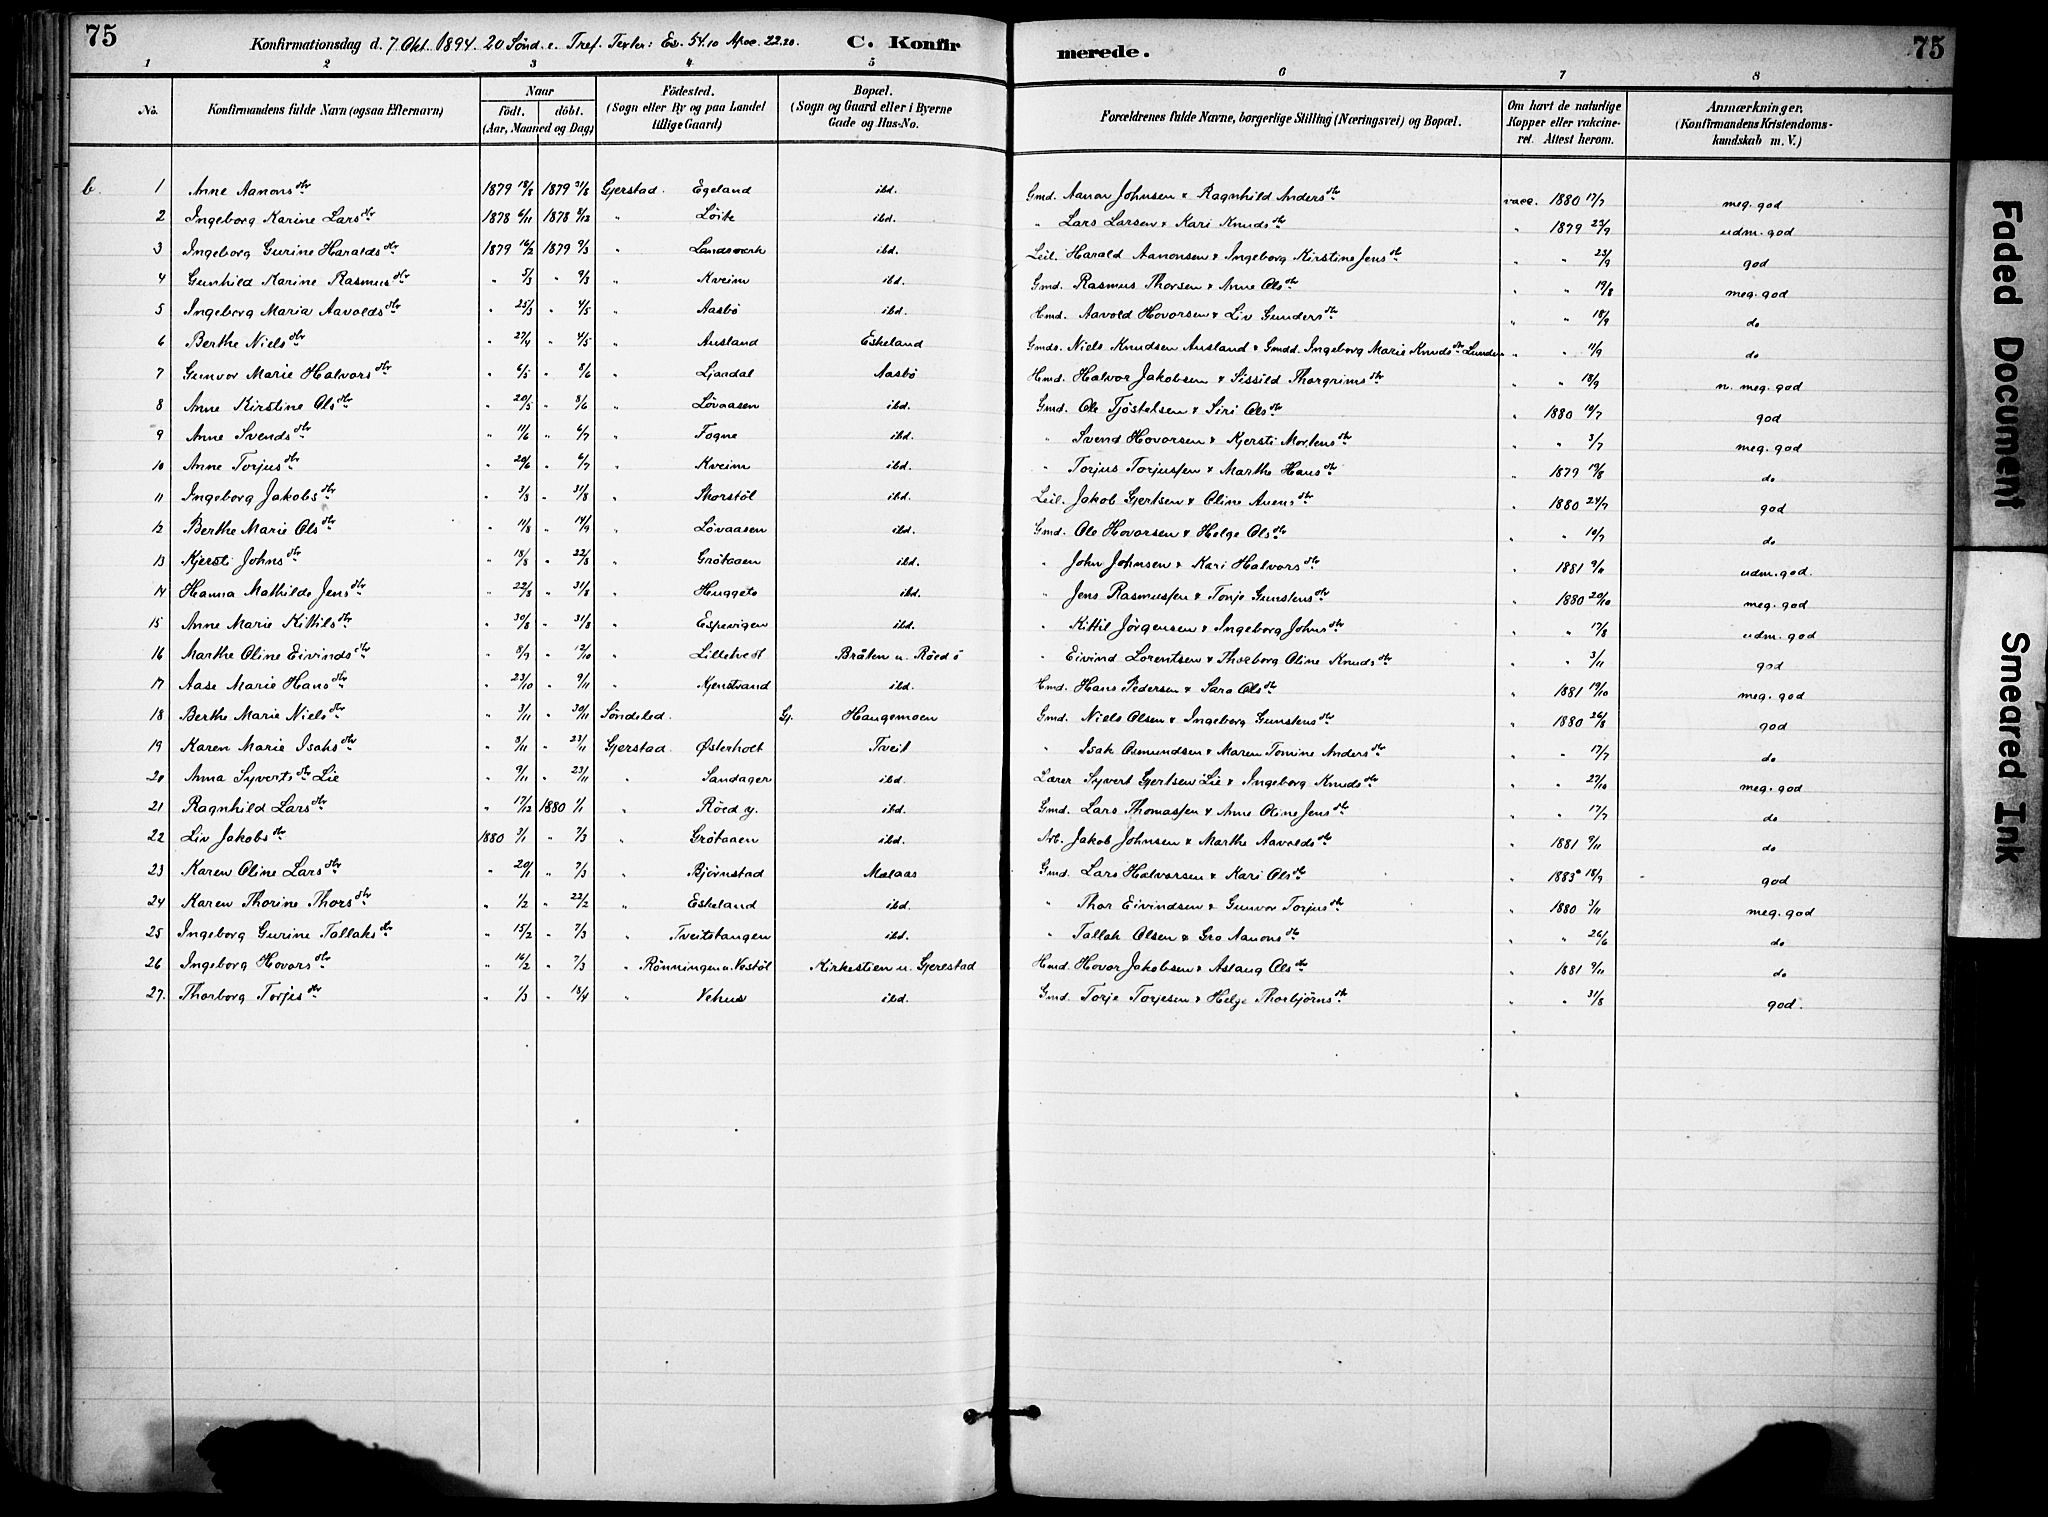 75 Konfirmationsdag d. 7 Okt. 1894. 20 Sönd. e. Tref. Texter: Es. 54.10 Apoc. 22.20. C. Konfir merede. 75
1 2 3 4 5 6 7 8
No. Konfirmandens fulde Navn (ogsaa Efternavn) Naar födt. döbt. (Aar, Maaned og Dag) Födested. (Sogn eller By og paa Landet tillige Gaard) Bopæl. (Sogn og Gaard eller i Byerne Gade og Hus-No. Forældrenes fulde Navne, borgerlige Stilling (Næringsvei) og Bopæl. Om havt de naturlige Kopper eller vakcineret. Attest herom. Anmærkninger. (Konfirmandens Kristendomskundskab m. V.)
b. 1 Anne Aanonsdtr 1879 18/8 1879 31/8 Gjerstad. Egeland ibd. Gmd. Aanon Johnsen & Ragnhild Andersdtr vacc. 1880 17/7 meg. god
2 Ingeborg Karine Larsdtr 1878 6/11 1878 8/12 " Löite ibd. " Lars Larsen & Kari Knudsdtr " 1879 23/9 udm. god
3 Ingeborg Gurine Haraldsdtr 1879 16/2 1879 9/3 " Landsverk ibd. Leil. Harald Aanonsen & Ingeborg Kirstine Jensdtr " " 23/9 god
4 Gunhild Karine Rasmusdtr " 5/3 " 9/3 " Kveim ibd. Gmd. Rasmus Thorsen & Anne Olsdtr " " 19/8 meg. god
5 Ingeborg Maria Aavoldsdtr " 25/3 " 4/5 " Aasbö ibd. Hmd. Aavold Hovorsen & Liv Gundersdtr " " 18/9 do
6 Berthe Nielsdtr " 27/4 " 4/5 " Ausland Eskeland Gmds. Niels Knudsen Ausland & Gmdd. Ingeborg Marie Knudsdtr Lunden " " 11/9 do
7 Gunvor Marie Halvorsdtr " 6/5 " 8/6 " Ljandal Aasbö Hmd. Halvor Jakobsen & Sissild Thorgrimsdtr " " 18/9 n. meg. god
8 Anne Kirstine Olsdtr " 20/5 " 8/6 " Lövaasen ibd. Gmd. Ole Tjöstelsen & Siri Olsdtr " 1880 10/7 god
9 Anne Svendsdtr " 11/6 " 6/7 " Fogne ibd. " Svend Hovorsen & Kjersti Mortensdtr " " 3/7 meg. god
10 Anne Torjusdtr " 20/6 " 6/7 " Kveim ibd. " Torjus Torjussen & Marthe Hansdtr " 1879 19/8 do
11 Ingeborg Jakobsdtr " 3/8 " 31/8 " Thorstöl ibd. Leil. Jakob Gjertsen & Oline Auensdtr " 1880 24/7 god
12 Berthe Marie Olsdtr " 11/8 " 14/9 " Lövaasen ibd. Gmd. Ole Hovorsen & Helge Olsdtr " " 10/7 do
13 Kjersti Johnsdtr " 18/8 " 22/8 " Grötaaen ibd. " John Johnsen & Kari Halvorsdtr " 1881 9/11 udm. god.
14 Hanna Mathilde Jensdtr " 22/8 " 31/8 " Huggeto ibd. " Jens Rasmussen & Tonje Gunstensdtr " 1880 20/10 meg. god
15 Anne Marie Kittilsdtr " 30/8 " 31/8 " Espevigen ibd. " Kittil Jörgensen & Ingeborg Johnsdtr " " 17/8 udm. god
16 Marthe Oline Eivindsdtr " 8/9 " 12/10 " Lilletvet Bråten u. Röed ö " Eivind Lorentsen & Thorborg Oline Knudsdtr " " 3/11 god
17 Aase Marie Hansdtr " 23/10 " 9/11 " Kjenstrand ibd. Hmd. Hans Pedersen & Sara Olsdtr " 1881 19/10 meg. god
18 Berthe Marie Nielsdtr " 3/11 " 30/11 Söndeled. Gj. Haugemoen Gmd. Niels Olsen & Ingeborg Gunstensdtr " 1880 26/8 god
19 Karen Marie Isaksdtr " 8/11 " 23/11 Gjerstad. Østerholt Tveit " Isak Osmundsen & Maren Tomine Andersdtr " " 17/7 do
20 Anna Syvertsdtr Lie " 9/11 " 23/11 " Sandager ibd. Lærer Syvert Gjertsen Lie & Ingeborg Knudsdtr " " 27/10 meg. god
21 Ragnhild Larsdtr " 17/12 1880 1/1 " Röed y. ibd. Gmd. Lars Thomassen & Anne Oline Jensdtr " " 17/7 do
22 Liv Jakobsdtr 1880 3/1 " 7/3 " Grötaaen ibd. Arb. Jakob Johnsen & Marthe Aavoldsdtr " 1881 9/11 do
23 Karen Oline Larsdtr " 20/1 " 7/3 " Björnstad Molaas Gmd. Lars Halvorsen & Kari Olsdtr " 1883 18/9 god
24 Karen Thorine Thorsdtr " 1/2 " 22/2 " Eskeland ibd. " Thor Eivindsen & Gunvor Torjusdtr " 1880 3/11 meg. god
25 Ingeborg Gurine Tallaksdtr " 15/2 " 7/3 " Tveitstangen ibd. " Tallak Olsen & Gro Aanonsdtr " " 26/6 do
26 Ingeborg Hovorsdtr " 16/2 " 7/3 " Rönningen u. Vestöl Kirkestien u. Gjerstad Hmd. Hovor Jakobsen & Aslaug Olsdtr " 1881 9/11 do
27. Thorborg Torjesdtr " 1/3 " 18/4 " Vehus ibd. Gmd. Torje Torjesen & Helje Thorbjörnsdtr " " 31/8 god.
Faded Document
Smeared Ink